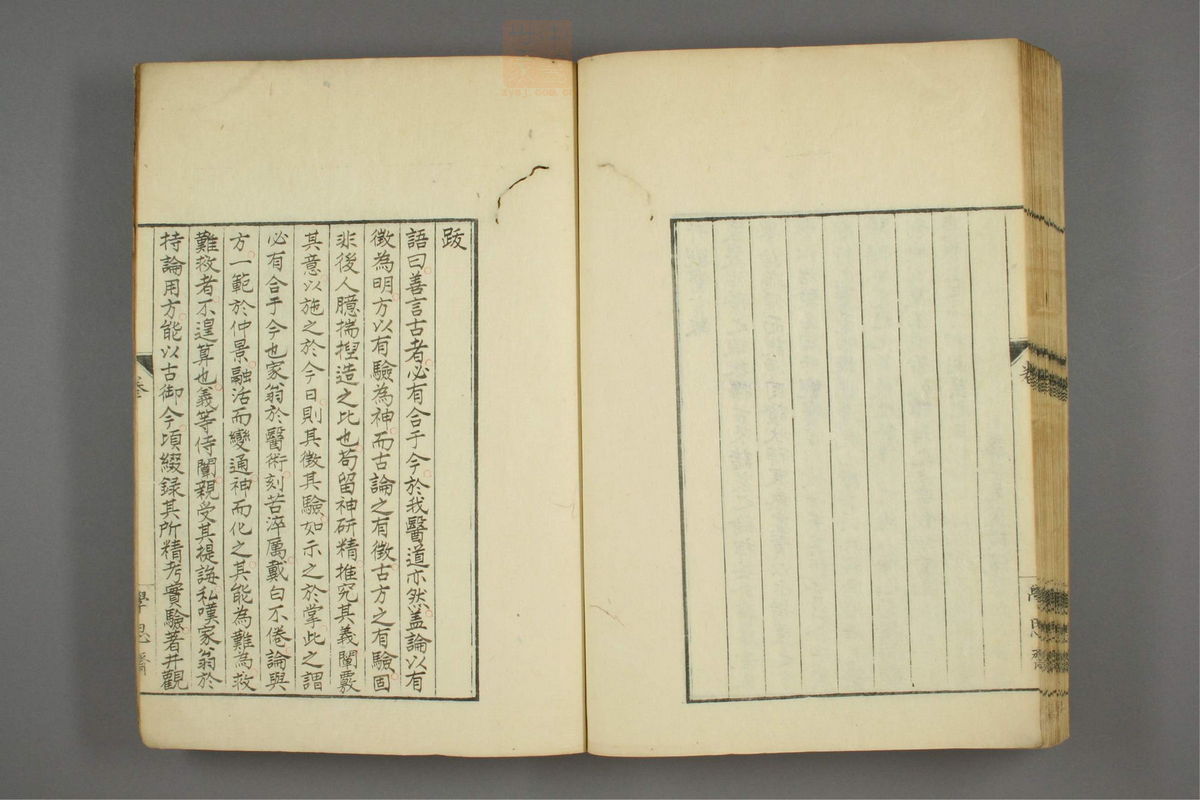 跋
語曰善言古者必有合于今於我醫道亦然盖論以有
徵為明方以有驗為神而古論之有徵古方之有驗固
非後人臆揣揑造之比也苟留神研精推究其義闡覈
其意以施之於今日則其徵其驗如示之於掌此之謂
必有合于今也家翁於醫術刻苦淬厲戴白不倦論與
方一範於仲景融活而變通神而化之其能為難為救
難救者不遑算也義等侍闈親受其提誨私嘆家翁於
持論用方能以古御今頃綴録其所精考實驗著井觀
學思齋